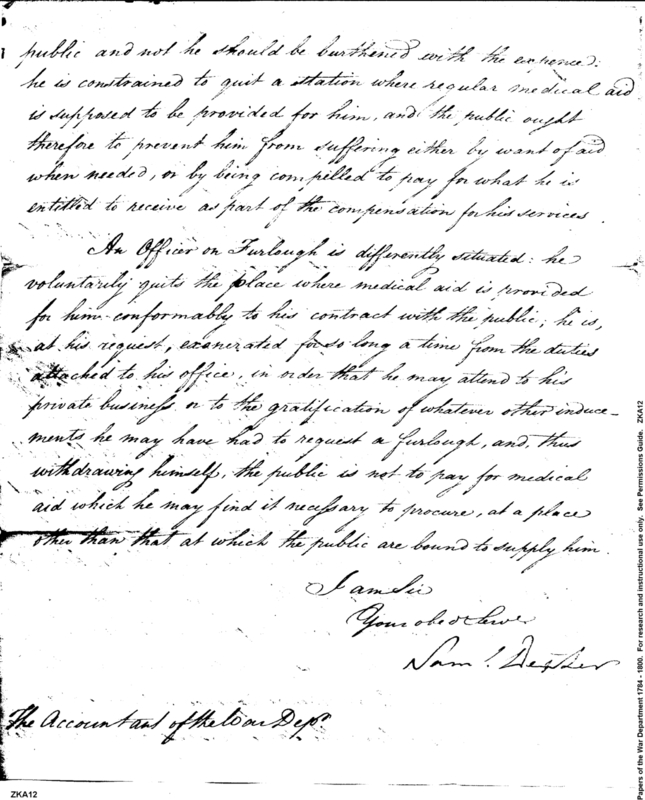 public and not he should be burthened with the expence:
he is constrained to quit a station where regular medical aid
is supposed to be provided for him, and the public ought
therefore to prevent him from suffering either by want of aid
when needed, or by being compelled to pay for what he is
entitled to receive as part of the compensation for his services.
An Officer on Furlough is differently situated: he
voluntarily quits the place where medical aid is provided
for him conformably to his contract with the public; he is,
at his request, exonerated for so long a time from the duties
attached to his office, in order that he may attend to his
private business or to the gratification of whatever other induce-
ments he may have had to request a furlough, and, thus
withdrawing himself, the public is not to pay for medical
aid which he may find it necessary to procure, at a place
other than that at which the public are bound to supply him.
I am Sir
Your obed Serv
Sam. Dexter
The Accountant of the War Dept.
ZKA12
Papers of the War Department 1784 - 1800. For research and instructional use only. See Permissions Guide. ZKA12